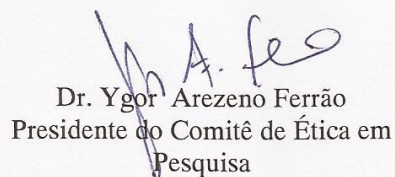 Dr. Ygor Arezeno Ferrão
Presidente do Comitê de Ética em
Pesquisa